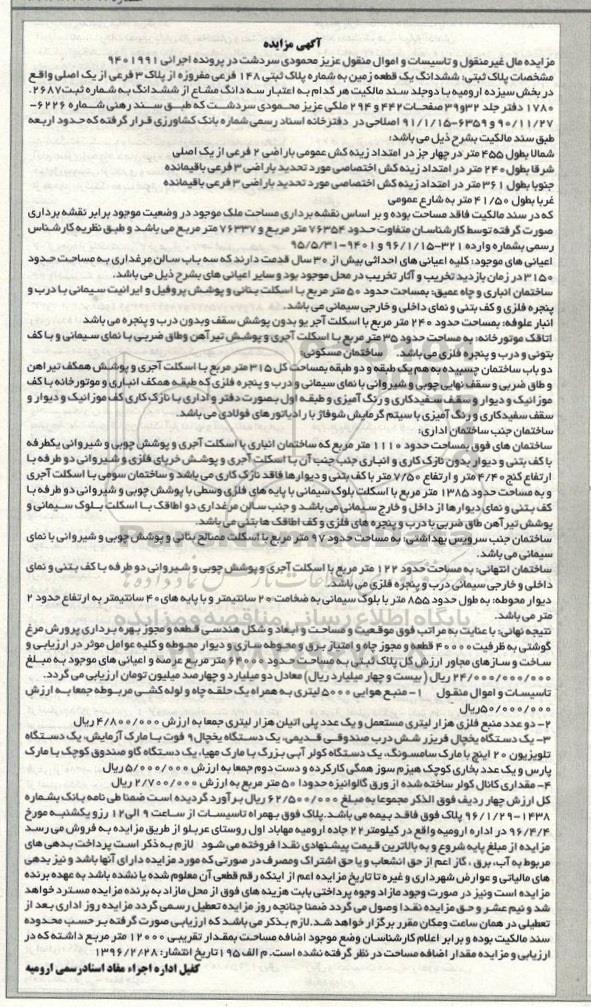 آگهی مزایده
مزایده مال غیرمنقول و تاسیسات و اموال منقول عزیز محمودی سردشت در پرونده اجرائی ۹۴۰۱۹۹۱
مشخصات پلاک ثبتی: ششدانگ یک قطعه زمین به شماره پلاک ثبتی ۱۴۸ فرعی مفروزه از پلاک ۳ فرعی از یک اصلی واقع
در بخش سیزده ارومیه با دوجلد سند مالکیت هر کدام به اعتبار سه دانگ مشاع از ششدانگ به شماره ثبت ۲۶۸۷۰
۱۷۸۰ دفتر جلد ۳۲و۳۹ صفحات ۴۴۲ و ۲۹۴ ملکی عزیز محمودی سردشت که طبق سند رهنی شماره ۶۲۲۶-
۹۰/۱۱/۲۷ و ۶۳۵۹-۹۱/۱/۱۵ اصلاحی در دفترخانه اسناد رسمی شماره بانک کشاورزی قرار گرفته که حدود اربعه
طبق سند مالکیت بشرح ذیل می باشد:
شمالا بطول ۴۵۵ متر در چهار جز در امتداد زینه کش عمومی باراضی ۲ فرعی از یک اصلی
شرقا بطول ۲۴۰ متر در امتداد زینه کش اختصاصی مورد تحدید باراضی ۳ فرعی باقیمانده
جنوبا بطول ۳۶۱ متر در امتداد زینه کش اختصاصی مورد تحدید باراضی ۳ فرعی باقیمانده
غربا بطول ۴۱/۵۰ متر به شارع عمومی
که در سند مالکیت فاقد مساحت بوده و بر اساس نقشه برداری مساحت ملک موجود در وضعیت موجود برابر نقشه برداری
صورت گرفته توسط کارشناسان متفاوت حدود ۷۶۳۵۴ متر مربع و ۷۶۳۳۷ متر مربع می باشد و طبق نظریه کارشناس
رسمی بشماره وارده ۳۲۱-۹۶/۱/۱۵ و ۹۴۰۱-۹۵/۵/۳۱
اعیانی های موجود: کلیه اعیانی های احداثی بیش از ۳۰ سال قدمت دارند که سه باب سالن مرغداری به مساحت حدود
۳۱۵۰ در زمان بازدید تخریب و آثار تخریب در محل موجود بود و سایر اعیانی های بشرح ذیل می باشد.
ساختمان انباری و چاه عمیق: بمساحت حدود ۵۰ متر مربع با اسکلت بنائی و پوشش پروفیل و ایرانیت سیمانی با درب و
پنجره فلزی و کف بتنی و نمای داخلی و خارجی سیمانی می باشد.
انبار علوفه: بمساحت حدود ۲۴۰ متر مربع با اسکلت آجر یو بدون پوشش سقف وبدون درب و پنجره می باشد
اتاقک موتورخانه: به مساحت حدود ۳۵ متر مربع با اسکلت آجری و پوشش تیرآهن وطاق ضربی با نمای سیمانی و با کف
بتونی و درب و پنجره فلزی می باشد. ساختمان مسکونی:
دو باب ساختمان چسبیده به هم یک طبقه و دو طبقه بمساحت کل ۳۱۵ متر مربع با اسکلت آجری و پوشش همکف تیراهن
و طاق ضربی و سقف نهایی چوبی و شیروانی با نمای سیمانی و درب و پنجره فلزی که طبقه همکف انباری و موتورخانه با کف
موزائیک و دیوار و سقف سفیدکاری و رنگ آمیزی و طبقه اول بصورت دفتر و اداری با نازک کاری کف موزائیک و دیوار و
سقف سفیدکاری و رنگ آمیزی با سیتم گرمایش شوفاژ با رادیاتور های فولادی می باشد.
ساختمان جنب ساختمان اداری:
ساختمان های فوق بمساحت حدود ۱۱۱۰ متر مربع که ساختمان انباری با اسکلت آجری و پوشش چوبی و شیروانی یکطرفه
با کف بتنی و دیوار بدون نازک کاری و انباری جنب جنب آن با اسکلت آجری و پوشش خرپای فلزی و شیروانی دو طرفه با
ارتفاع کنج ۴/۴۰ متر و ارتفاع ۷/۵۰ متر با کف بتنی و دیوارها فاقد نازک کاری می باشد و ساختمان سومی با اسکلت آجری
و به مساحت حدود ۱۳۸۵ متر مربع با اسکلت بلوک سیمانی با پایه های فلزی وسطی با پوشش چوبی و شیروانی دو طرفه با
کف بتنی و نمای دیوارها از داخل و خارج سیمانی می باشد و جنب سالن مرغداری دو اطاقک با اسکلت بلوک سیمانی و
پوشش تیرآهن طاق ضربی با درب و پنجره های فلزی و کف اطاقک ها بتنی می باشد.
ساختمان جنب سرویس بهداشتی: به مساحت حدود ۹۷ متر مربع با اسکلت مصالح بنائی و پوشش چوبی و شیروانی با نمای
سیمانی می باشد.
ساختمان انتهائی: به مساحت حدود ۱۲۲ متر مربع با اسکلت آجری و پوشش چوبی و شیروانی دو طرفه با کف بتنی و نمای
داخلی و خارجی سیمانی درب و پنجره فلزی می باشد.
دیوار محوطه: به طول حدود ۸۵۵ متر با بلوک سیمانی به ضخامت ۲۰ سانتیمتر و با پایه های ۴۰ سانتیمتر به ارتفاع حدود ۲
متر می باشد.
نتیجه نهائی: با عنایت به مراتب فوق موقعیت و مساحت و ابعاد و شکل هندسی قطعه و مجوز بهره برداری پرورش مرغ
گوشتی به ظرفیت ۴۰۰۰۰ قطعه و مجوز چاه و امتیاز برق و محوطه سازی و دیوار محوطه و کلیه عوامل موثر در ارزیابی و
ساخت و سازهای مجاور ارزش کل پلاک ثبتی به مساحت حدود ۶۴۰۰۰ متر مربع عرصه و اعیانی های موجود به مبلغ
۲۴/۰۰۰/۰۰۰/۰۰۰ ریال (بیست و چهار میلیارد ریال) معادل دو میلیارد و چهارصد میلیون تومان ارزیابی می گردد.
تاسیسات و اموال منقول ۱- منبع هوایی ۵۰۰۰ لیتری به همراه یک حلقه چاه و لوله کشی مربوطه جمعا به ارزش
۵۰/۰۰۰/۰۰۰ریال
۲- دو عدد منبع فلزی هزار لیتری مستعمل و یک عدد پلی اتیلن هزار لیتری جمعا به ارزش ۴/۸۰۰/۰۰۰ ریال
۳- یک دستگاه یخچال فریزر شش درب صندوقی قدیمی، یک دستگاه یخچال ۹ فوت با مارک آزمایش، یک دستگاه
تلویزیون ۲۰ اینچ با مارک سامسونگ، یک دستگاه کولر آبی بزرگ با مارک مهیا، یک دستگاه گاو صندوق کوچک با مارک
پارس و یک عدد بخاری کوچک هیزم سوز همگی کارکرده و دست دوم جمعا به ارزش ۵/۰۰۰/۰۰۰ ریال
۴- مقداری کانال کولر ساخته شده از ورق گالوانیزه حدودا ۵۰ متر مربع به ارزش ۲/۷۰۰/۰۰۰ ریال
کل ارزش چهار ردیف فوق الذکر مجموعا به مبلغ ۶۲/۵۰۰/۰۰۰ ریال برآورد گردیده است ضمنا طی نامه بانک بشماره
۱۴۳۸-۹۶/۱/۲۹ پلاک فوق فاقد بیمه می باشد. پلاک فوق بهمراه تاسیسات از ساعت ۹ الی۱۲ رزو یکشنبه مورخ
۹۶/۴/۴ در اداره ارومیه واقع در کیلومتر ۲۲ جاده ارومیه مهاباد اول روستای عربلو از طریق مزایده به فروش می رسد
مزایده از مبلغ پایه شروع و به بالاترین قیمت پیشنهادی نقدا فروخته می شود لازم به ذکر است پرداخت بدهی های
مربوط به آب، برق ، گاز اعم از حق انشعاب و یا حق اشتراک ومصرف در صورتی که مورد مزایده دارای آنها باشد و نیز بدهی
های مالیاتی و عوارض شهرداری و غیره تا تاریخ مزایده اعم از اینکه رقم قطعی آن معلوم شده یا نشده باشد به عهده برنده
مزایده است ونیز در صورت وجود مازاد وجوه پرداختی بابت هزینه های فوق از محل مازاد به برنده مزایده مسترد خواهد
شد و نیم عشر و حق مزایده نقدا وصول می گردد ضمنا چنانچه روز مزایده تعطیل رسمی گردد مزایده روز اداری بعد از
تعطیلی در همان ساعت ومکان مقرر برگزار خواهد شد.لازم بذکر می باشد که ارزیابی صورت گرفته بر حسب محدوده
سند مالکیت بوده و برابر اعلام کارشناسان وضع موجود اضافه مساحت بمقدار تقریبی ۱۲۰۰۰ متر مربع داشته که در
ارزیابی و مزایده مقدار اضافه مساحت در نظر گرفته نشده است. م الف ۱۹۵ تاریخ انتشار: ۱۳۹۶/۲/۲۸
کفیل اداره اجراء مفاد اسنادرسمی ارومیه